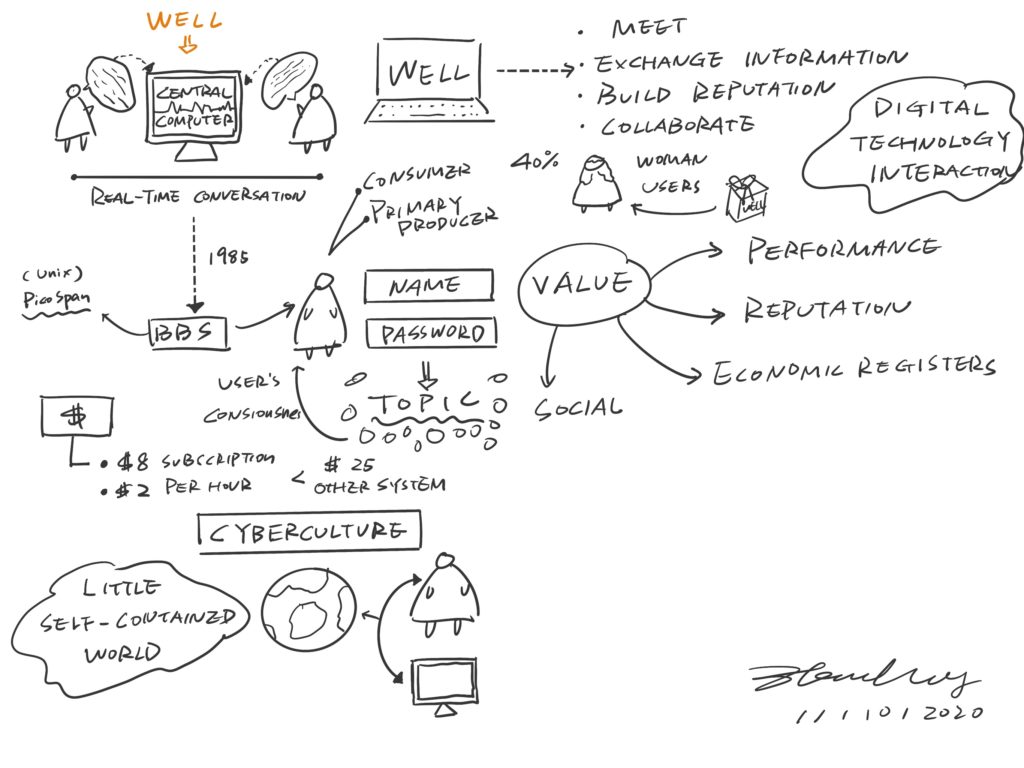 WELL
CENTRAL
COMPUTER
REAL-TIME CONVERSATION
WELL
• MEET
• EXCHANGE INFORMATION
• BUILD REPUTATION
• COLLABORATE
DIGITAL
TECHNOLOGY
INTERACTION
40%
WOMAN
USERS
WELL
CONSUMER
PRIMARY
PRODUCER
1985
(Unix)
PicoSpan
BBS
NAME
PASSWORD
VALUE
PERFORMANCE
REPUTATION
ECONOMIC REGISTERS
SOCIAL
USER'S
TOPIC
$
• $8 SUBSCRIPTION
• $2 PER HOUR
< $25
OTHER SYSTEM
CYBERCULTURE
LITTLE
SELF-CONTAINED
WORLD
2020